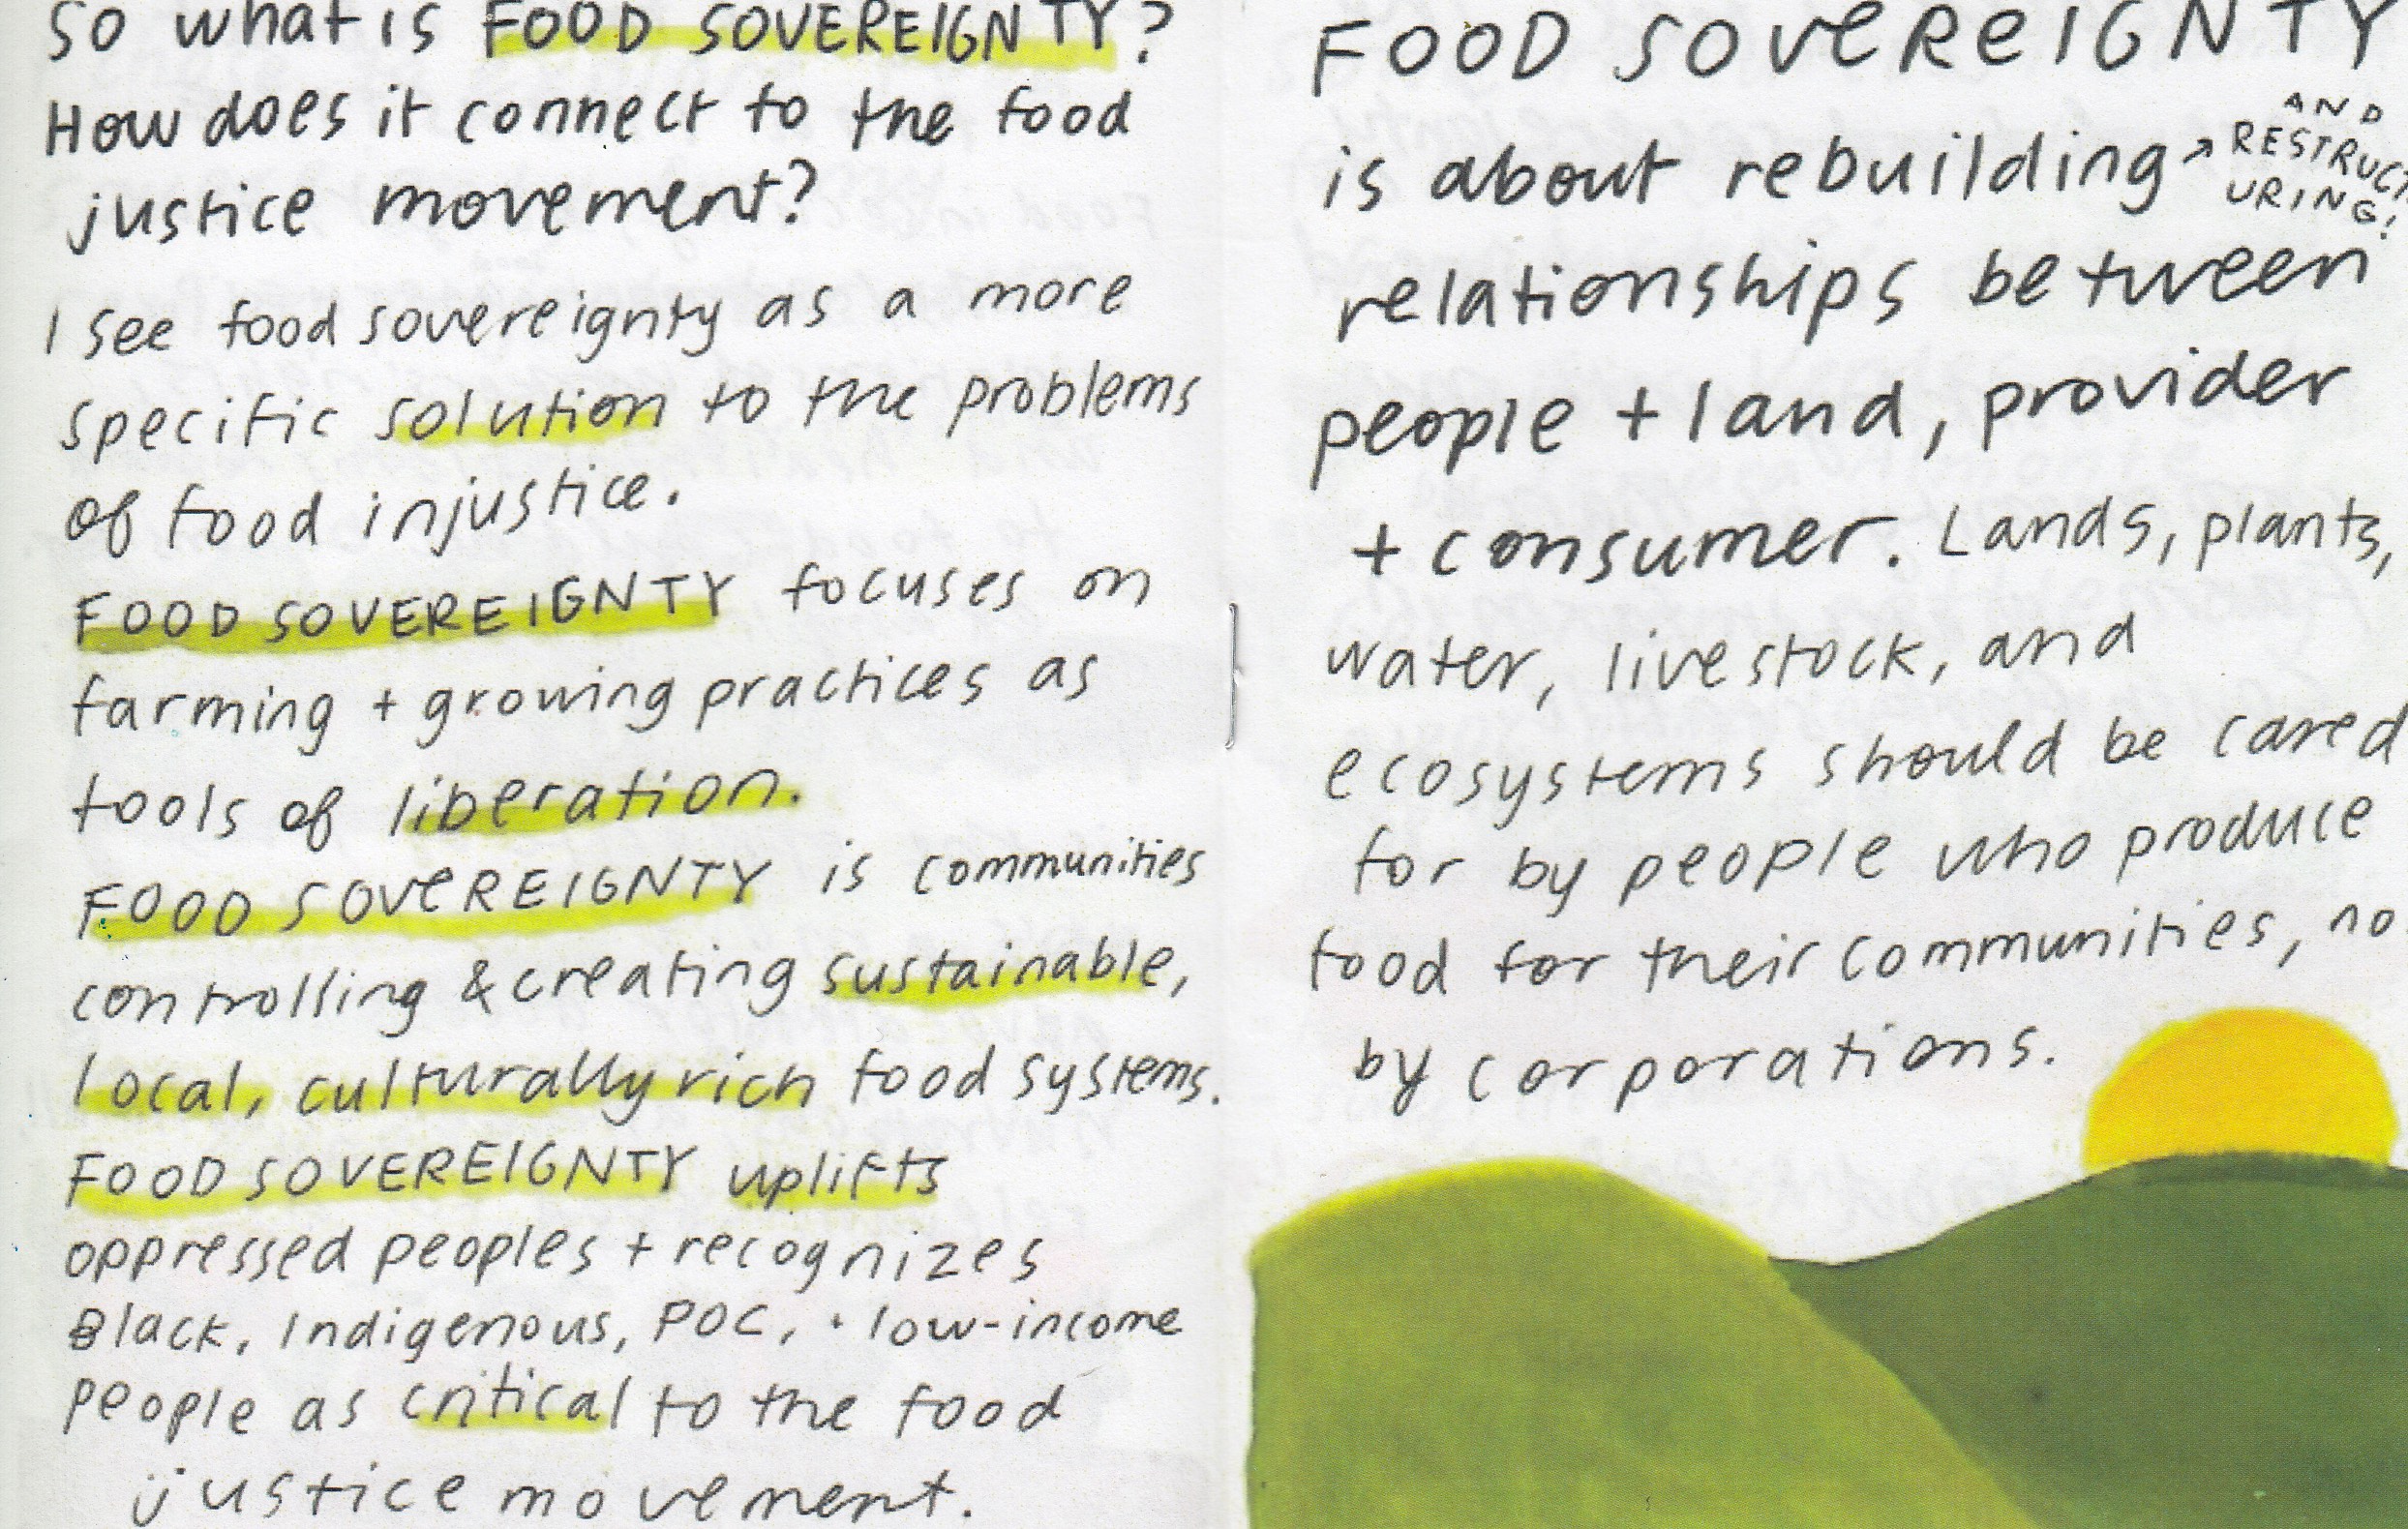 So what is FOOD SOVEREIGNTY?
How does it connect to the food
justice movement?
I see food sovereignty as a more
specific solution to the problems
of food injustice.
FOOD SOVEREIGNTY focuses on
farming + growing practices as
tools of liberation.
FOOD SOVEREIGNTY is communities
controlling & creating sustainable,
local, culturally rich food systems.
FOOD SOVEREIGNTY uplifts
oppressed peoples + recognizes
Black, Indigenous, POC, + low-income
people as critical to the food
justice movement.
FOOD SOVEREIGNTY
is about rebuilding
AND
RESTRUCT
URING!
relationships between
people + land, provider
+ consumer. Lands, plants,
water, livestock, and
ecosystems should be cared
for by people who produce
food for their communities, no
by corporations.